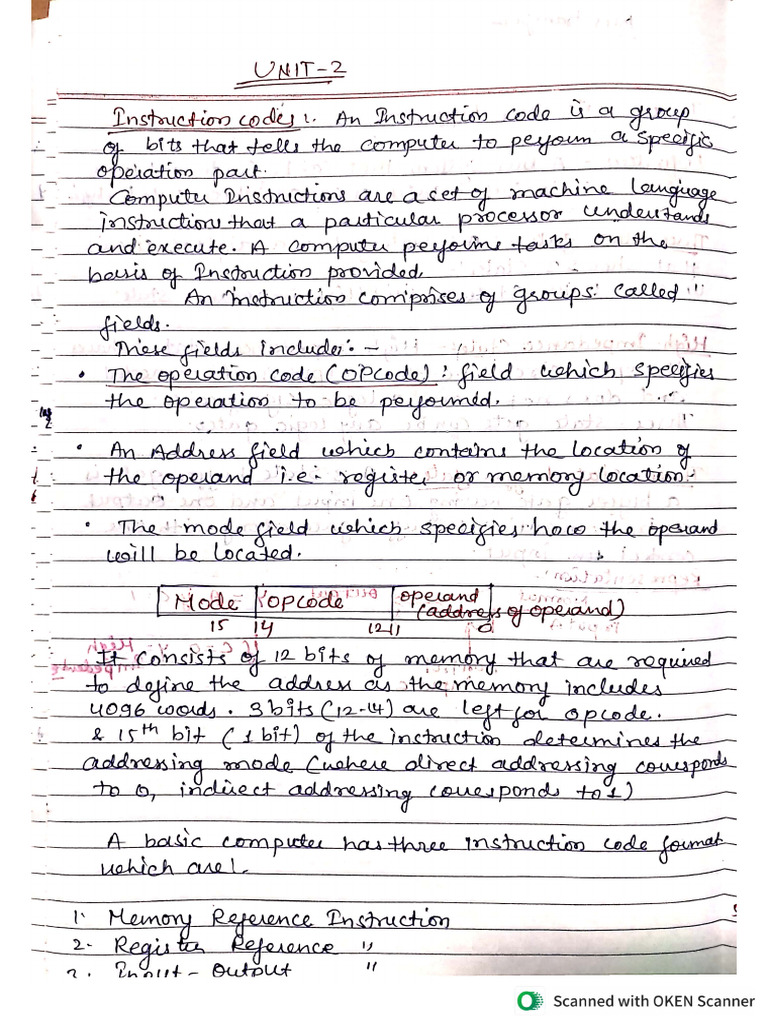 UNIT-2
Instruction codes :. An Instruction code is a group
of bits that tells the computer to perform a specific
operation part.
Computer Instructions are a set of machine language
instructions that a particular processor understands
and execute. A computer performs tasks on the
basis of Instruction provided.
An instruction comprises of groups called
fields.
These fields include:-
• The operation code (OPcode) : field which specifies
the operation to be performed.
• An Address field which contains the location of
the operand i.e. register or memory location.
• The mode field which specifies how the operand
will be located.
Mode OPcode operand
(address of operand)
15 14 12 11 0
It consists of 12 bits of memory that are required
to define the address as the memory includes
4096 words. 3 bits (12-14) are left for opcode.
& 15th bit (1 bit) of the instruction determines the
addressing mode (where direct addressing corresponds
to 0, indirect addressing corresponds to 1)
A basic computer has three instruction code format
which are:
1. Memory Reference Instruction
2. Register Reference "
3. Input-Output "
Scanned with OKEN Scanner